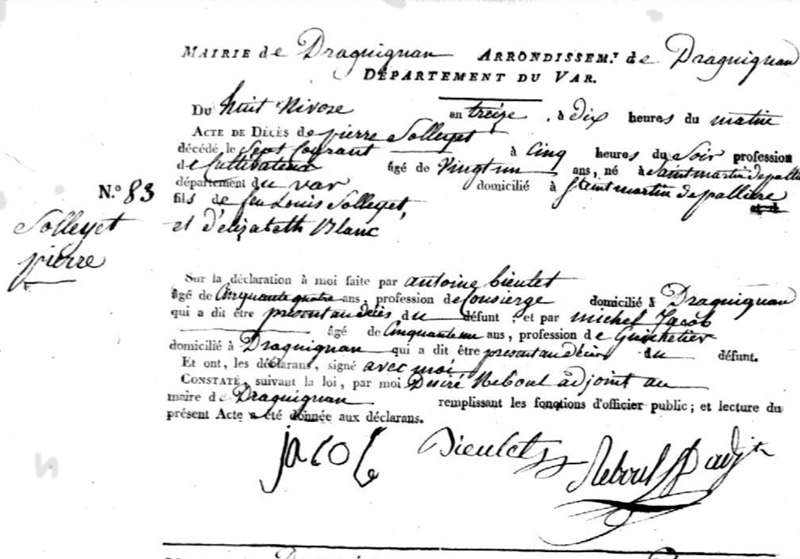 MAIRIE de Draguignan ARRONDISSEM.t de Draguignan
DÉPARTEMENT DU VAR.
Du huit Nivose an treize, à dix heures du matin
ACTE DE DÉCÈS de pierre Solleyet
décédé le Sept Courant à Cinq heures du Soir profession
de Cultivateur âgé de Vingt un ans, né à Saint martin de palli
département du Var domicilié à Saint martin de palliere
N.o 83
fils de feu Louis Solleyet,
Solleyet
et d'élizabeth Blanc
pierre
Sur la déclaration à moi faite par antoine Dieulet
âgé de Cinquante quatre ans, profession de Consierge domicilié à Draguignan
qui a dit être present au décès du défunt; et par michel Jacob
âgé de Cinquante un ans, profession de Guichetier
domicilié à Draguignan qui a dit être present au décès du défunt.
Et ont, les déclarans, signé avec moi
CONSTATÉ, suivant la loi, par moi Désiré Reboul adjoint au
maire de Draguignan remplissant les fonctions d'officier public; et lecture du
présent Acte a été donnée aux déclarans.
jacob Dieulet Reboul adj.t